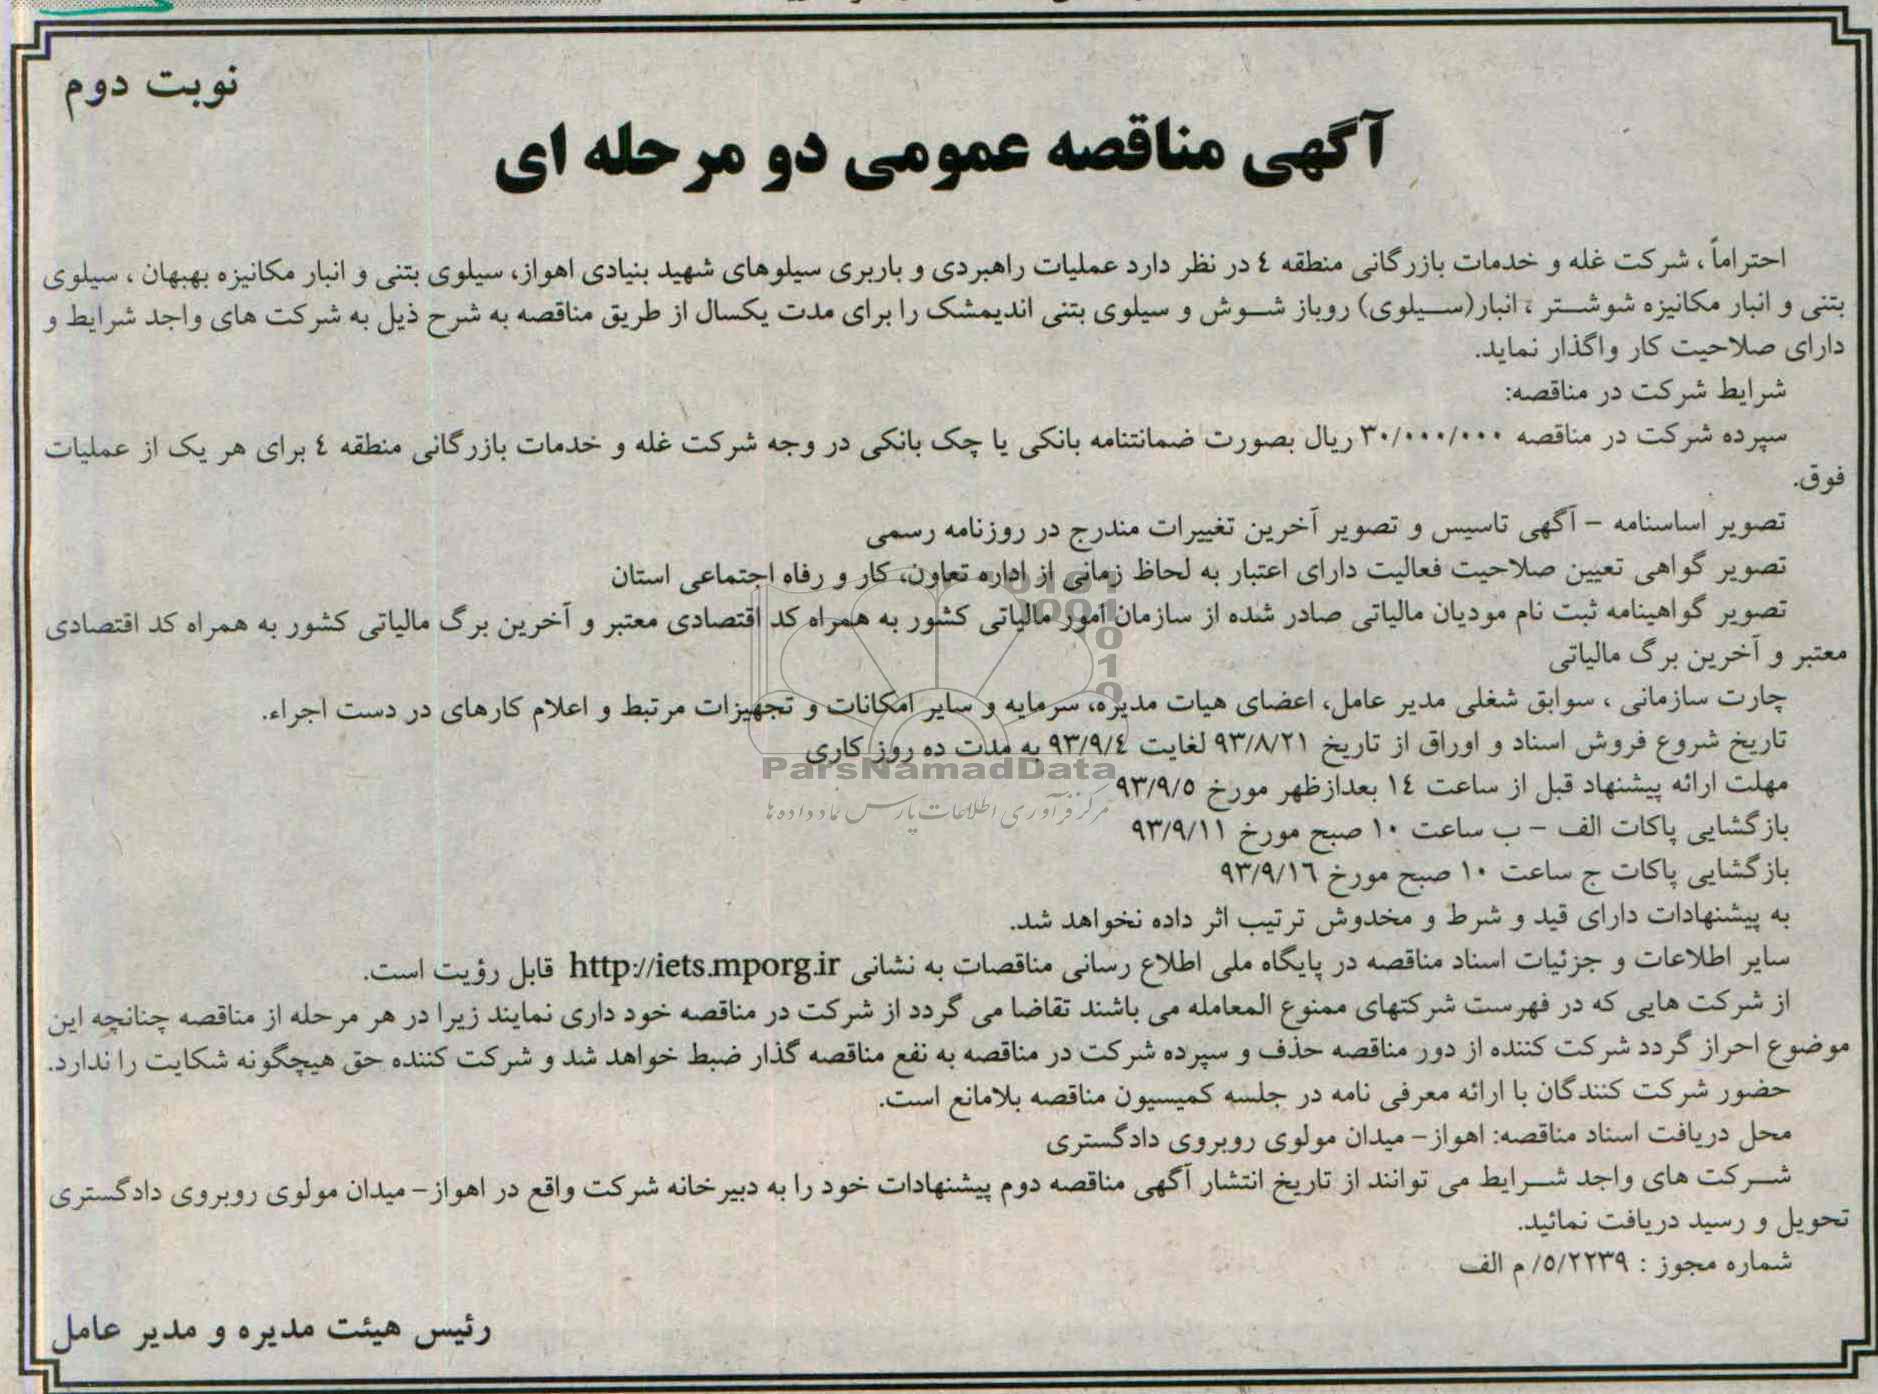 نوبت دوم
آگهی مناقصه عمومی دو مرحله ای
احتراماً ، شرکت غله و خدمات بازرگانی منطقه ٤ در نظر دارد عملیات راهبردی و باربری سیلوهای شهید بنیادی اهواز، سیلوی بتنی و انبار مکانیزه بهبهان ، سیلوی
بتنی و انبار مکانیزه شوشتر ، انبار(سیلوی) روباز شوش و سیلوی بتنی اندیمشک را برای مدت یکسال از طریق مناقصه به شرح ذیل به شرکت های واجد شرایط و
دارای صلاحیت کار واگذار نماید.
شرایط شرکت در مناقصه:
سپرده شرکت در مناقصه ۳۰/۰۰۰/۰۰۰ ریال بصورت ضمانتنامه بانکی یا چک بانکی در وجه شرکت غله و خدمات بازرگانی منطقه ٤ برای هر یک از عملیات
فوق.
تصویر اساسنامه – آگهی تاسیس و تصویر آخرین تغییرات مندرج در روزنامه رسمی
تصویر گواهی تعیین صلاحیت فعالیت دارای اعتبار به لحاظ زمانی از اداره تعاون، کار و رفاه اجتماعی استان
تصویر گواهینامه ثبت نام مودیان مالیاتی صادر شده از سازمان امور مالیاتی کشور به همراه کد اقتصادی معتبر و آخرین برگ مالیاتی کشور به همراه کد اقتصادی
معتبر و آخرین برگ مالیاتی
چارت سازمانی ، سوابق شغلی مدیر عامل، اعضای هیات مدیره، سرمایه و سایر امکانات و تجهیزات مرتبط و اعلام کارهای در دست اجراء.
تاریخ شروع فروش اسناد و اوراق از تاریخ ۹۳/۸/۲۱ لغایت ۹۳/۹/٤ به مدت ده روز کاری
ParsNamadData
مهلت ارائه پیشنهاد قبل از ساعت ۱٤ بعدازظهر مورخ ۹۳/۹/۵
مرکز فرآوری اطلاعات پارس نماد داده ها
بازگشایی پاکات الف – ب ساعت ۱۰ صبح مورخ ۹۳/۹/۱۱
بازگشایی پاکات ج ساعت ۱۰ صبح مورخ ۹۳/۹/۱٦
به پیشنهادات دارای قید و شرط و مخدوش ترتیب اثر داده نخواهد شد.
سایر اطلاعات و جزئیات اسناد مناقصه در پایگاه ملی اطلاع رسانی مناقصات به نشانی http://iets.mporg.ir قابل رؤیت است.
از شرکت هایی که در فهرست شرکتهای ممنوع المعامله می باشند تقاضا می گردد از شرکت در مناقصه خود داری نمایند زیرا در هر مرحله از مناقصه چنانچه این
موضوع احراز گردد شرکت کننده از دور مناقصه حذف و سپرده شرکت در مناقصه به نفع مناقصه گذار ضبط خواهد شد و شرکت کننده حق هیچگونه شکایت را ندارد.
حضور شرکت کنندگان با ارائه معرفی نامه در جلسه کمیسیون مناقصه بلامانع است.
محل دریافت اسناد مناقصه: اهواز- میدان مولوی روبروی دادگستری
شرکت های واجد شرایط می توانند از تاریخ انتشار آگهی مناقصه دوم پیشنهادات خود را به دبیرخانه شرکت واقع در اهواز- میدان مولوی روبروی دادگستری
تحویل و رسید دریافت نمائید.
شماره مجوز : ۵/۲۲۳۹/ م الف
رئیس هیئت مدیره و مدیر عامل